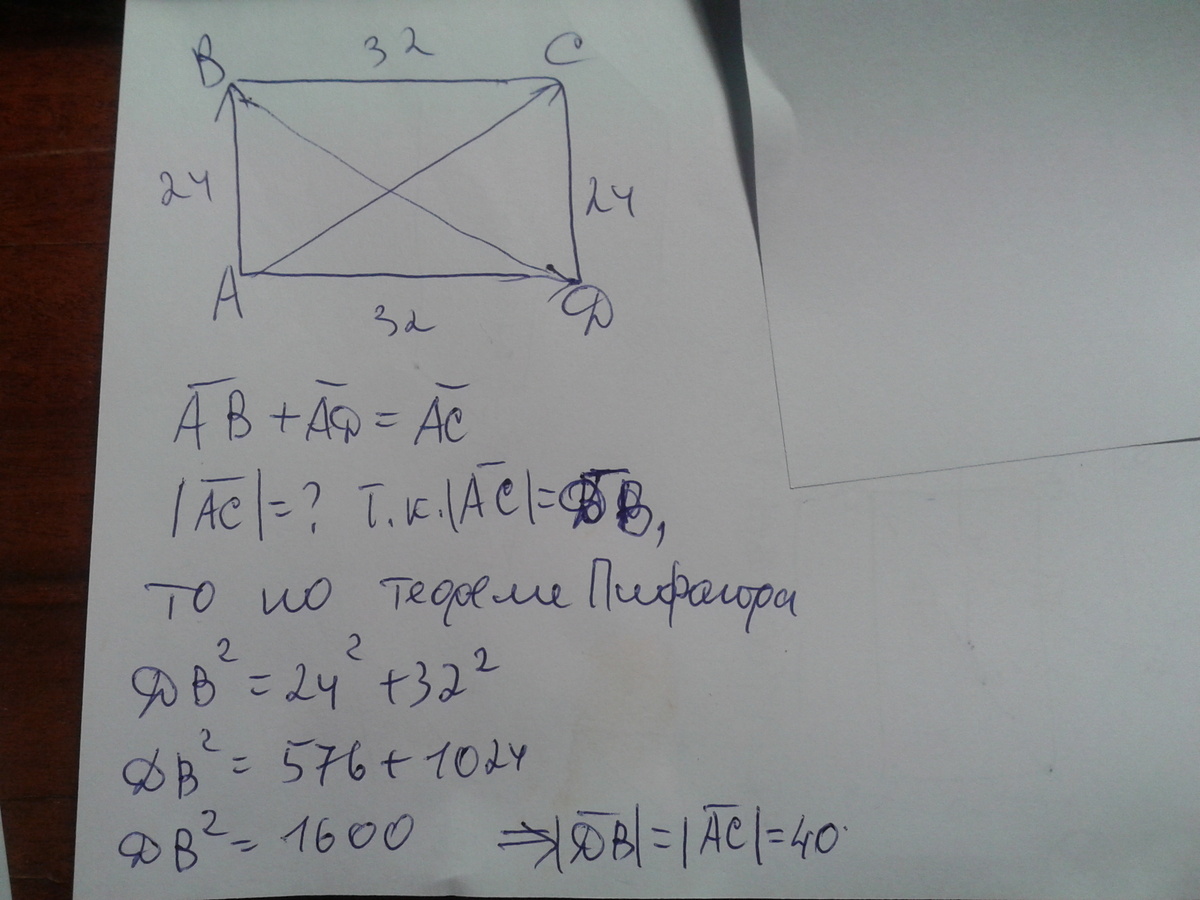 B 32 C
24 24
A 32 Д
A̅B̅ + A̅Д̅ = A̅C̅
|A̅C̅| = ? Т.к. |A̅C̅| = Д̅B̅,
то по теореме Пифагора
ДB² = 24² + 32²
ДB² = 576 + 1024
ДB² = 1600 ⇒ |Д̅B̅| = |A̅C̅| = 40.